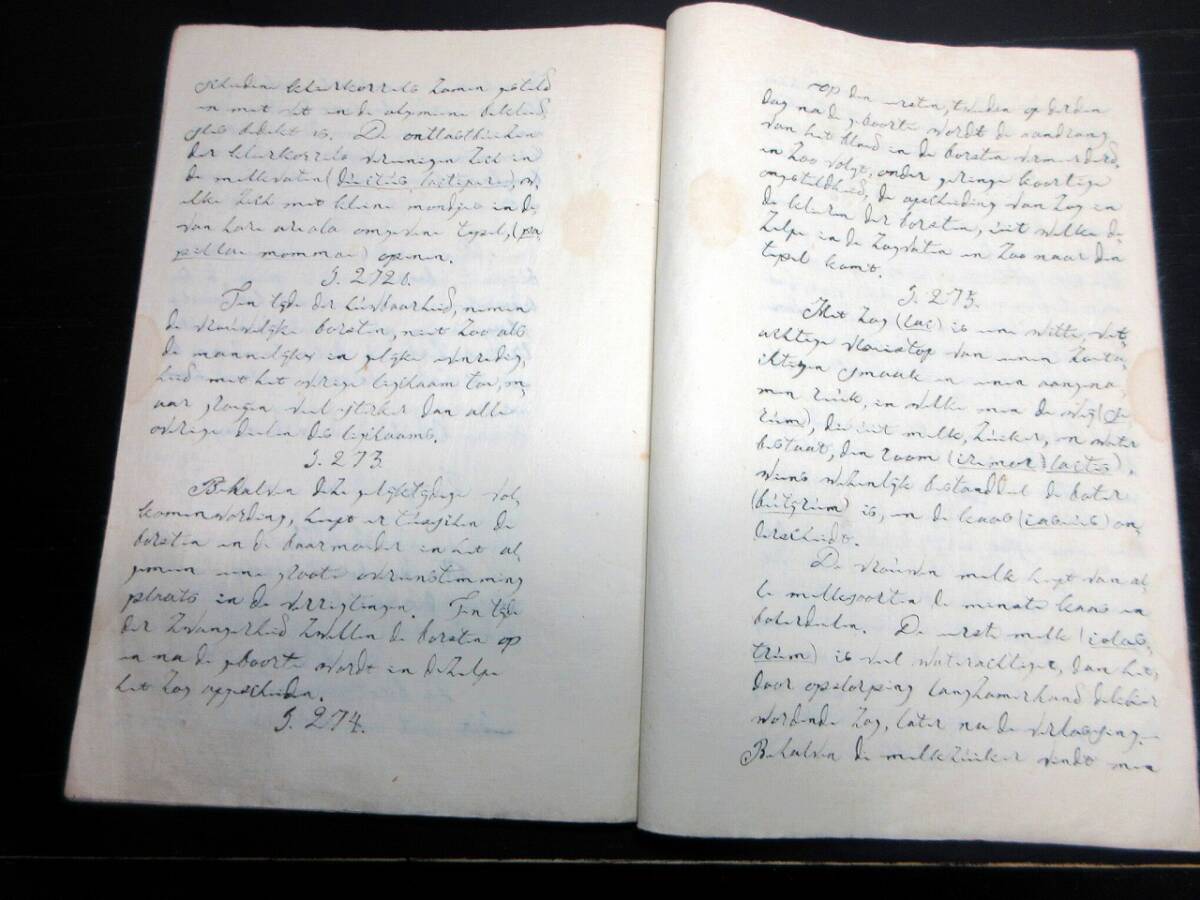 scheidene klierkorrels zamen gesteld
en met vet en de algemene bekleed-
sels bedekt is. De ontlastbuizen
der klierkorrels vereenigen zich in
de melkvaten (ductus lactiperi), w-
elke zich met kleine mondjes in de
van hare areola omgevene tepel, (pa-
pillae mommae) openen.
§. 272b.
Ten tijde der huwbaarheid, nemen
de vrouwelijke borsten, niet zoo als
de mannelijke in gelijke evenredig-
heid met het overige ligchaam toe, m-
aar groeijen veel sterker dan alle
overige deelen des ligchaams.
§. 273.
Behalven deze gelijktijdige vol-
komenwording, heeft er tusschen de
borsten en de baarmoeder in het al-
gemeen eene groote overeenstemming
plaats in de verrigtingen. Ten tijde
der zwangerheid zwellen de borsten op
en na de geboorte wordt in dezelve
het zog afgescheiden.
§. 274.
op den eersten, tweeden op derden
dag na de geboorte wordt de aandrang
van het bloed in de borsten vermeerderd,
en zoo volgt, onder geringe koortsige
ongesteldheid, de afscheiding van zog in
de klieren der borsten, uit welke de-
zelve in de zogvaten en zoo naar den
tepel komt.
§. 275.
Het zog (lac) is eene witte, vet-
achtige vloeistof van eenen zoeta-
chtigen smaak en eenen aangena-
men reuk, in welke men de weij (se-
rum), die uit melk, zuiker, en water
bestaat, den room (cremor lactis),
wiens wezenlijk bestanddeel de boter
(butyrum) is, en de kaas (caseus) on-
derscheidt.
De vrouwen melk heeft van al-
le melksoorten de minste kaas en
boterdeelen. De eerste melk (colos-
trum) is veel waterachtiger, dan het,
door opslorping langzamerhand dikker
wordende zog, later na de verlossing.
Behalven de melkzuiker vindt men